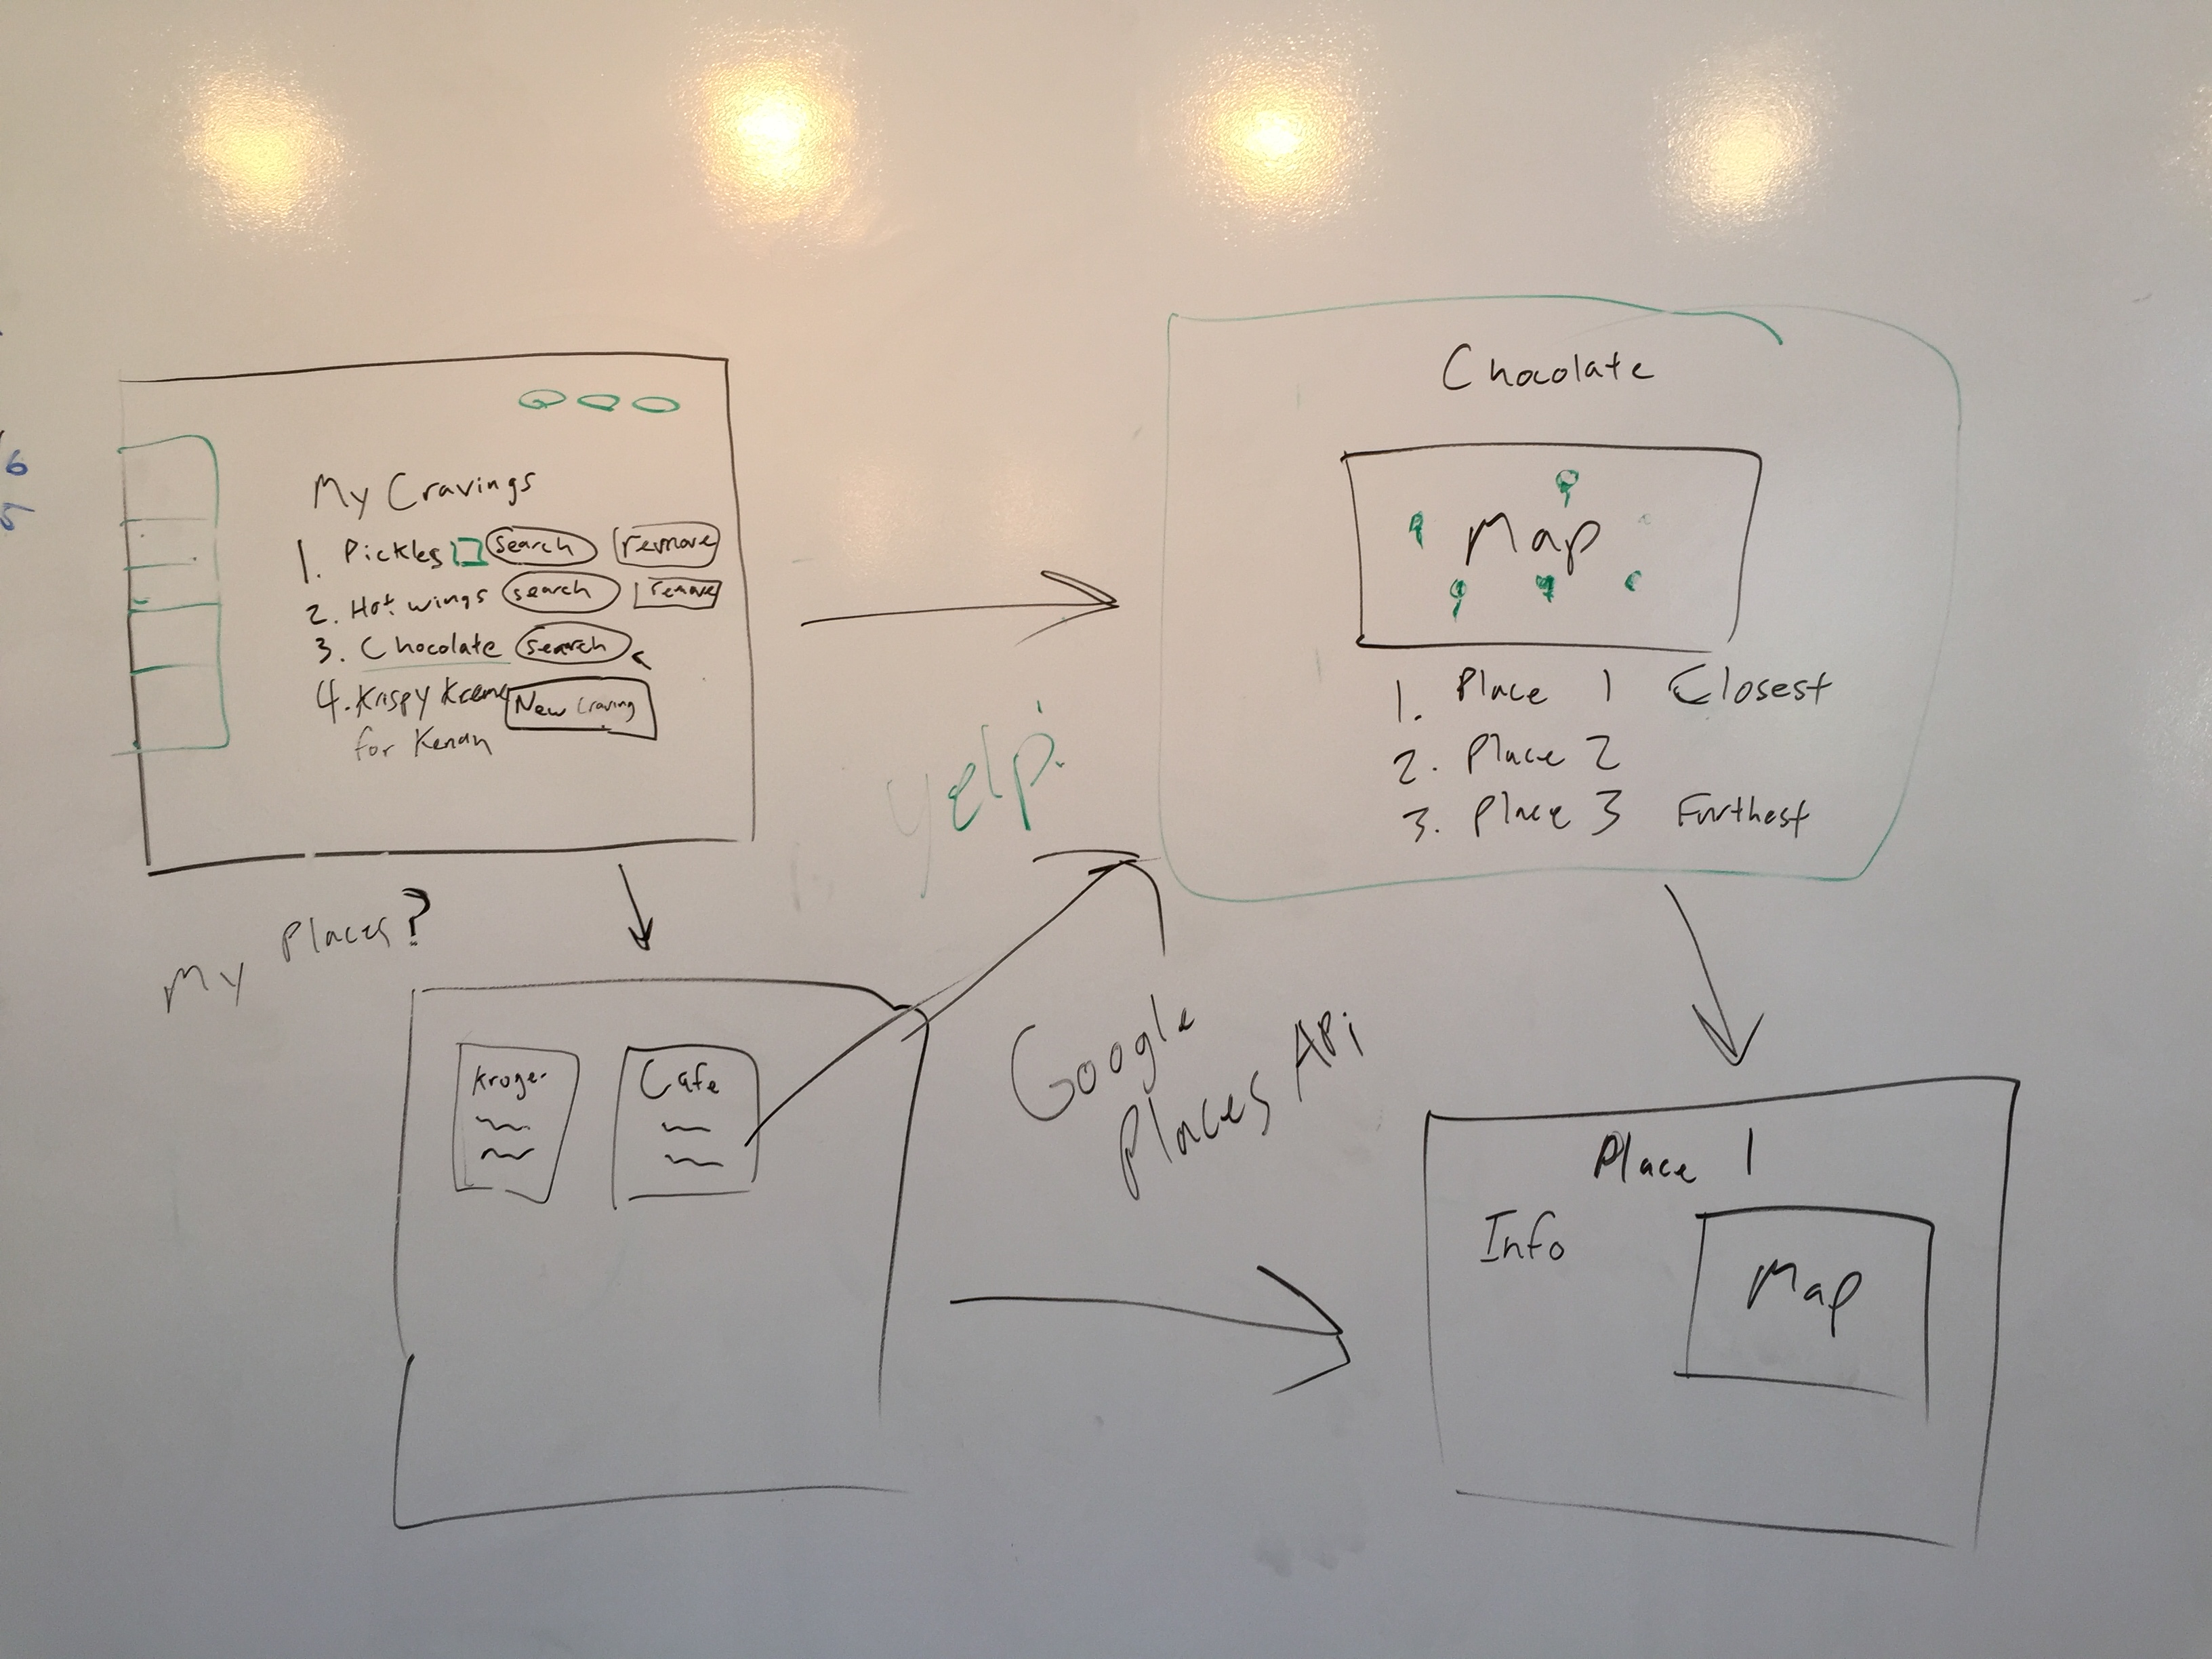 6
5
My Cravings
1. Pickles search remove
2. Hot wings search remove
3. Chocolate search
4. Krispy Kreme New Craving
for Kenan
Chocolate
Map
1. Place 1 Closest
2. Place 2
3. Place 3 Furthest
yelp
My Places?
Kroger
Cafe
Google
Places Api
Place 1
Info
Map